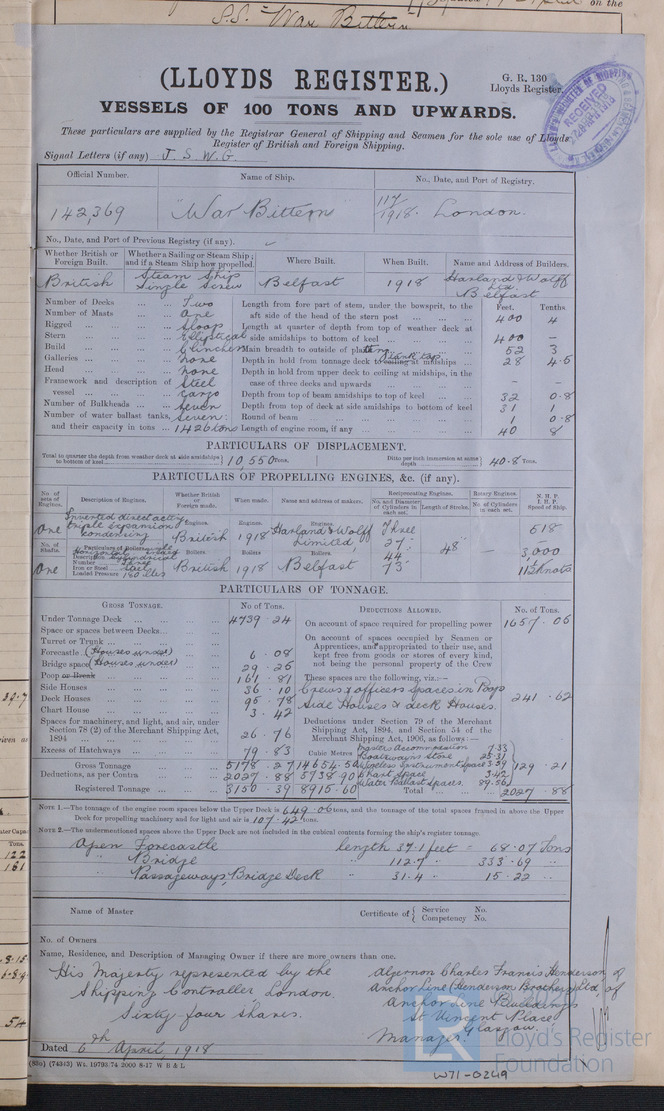 on the
S.S. "War Bittern
(LLOYDS REGISTER.)
G. R. 130
Lloyds Register
VESSELS OF 100 TONS AND UPWARDS.
RECEIVED
These particulars are supplied by the Registrar General of Shipping and Seamen for the sole use of Lloyds
Register of British and Foreign Shipping.
Signal Letters (if any) J. S. W. G.
Official Number. Name of Ship. No., Date, and Port of Registry.
142,369 "War Bittern" 117/1918. London.
No., Date, and Port of Previous Registry (if any).
Whether British or Foreign Built. Whether a Sailing or Steam Ship; and if a Steam Ship how propelled. Where Built. When Built. Name and Address of Builders.
British Steam Ship Single Screw Belfast 1918 Harland & Wolff Ltd. Belfast
Feet. Tenths.
Number of Decks Two
Number of Masts One
Rigged Sloop
Stern Elliptical
Build Clincher
Galleries None
Head None
Framework and description of vessel Steel Cargo
Number of Bulkheads Seven
Number of water ballast tanks, and their capacity in tons Seven: 1426 tons
Length from fore part of stem, under the bowsprit, to the aft side of the head of the stern post 400 4
Length at quarter of depth from top of weather deck at side amidships to bottom of keel 400 –
Main breadth to outside of plating 52 3
Depth in hold from tonnage deck to ceiling at midships tank top 28 4.5
Depth in hold from upper deck to ceiling at midships, in the case of three decks and upwards – –
Depth from top of beam amidships to top of keel 32 0.8
Depth from top of deck at side amidships to bottom of keel 31 1
Round of beam 1 0.8
Length of engine room, if any 40 8
PARTICULARS OF DISPLACEMENT.
Total to quarter the depth from weather deck at side amidships to bottom of keel 10,550 Tons. Ditto per inch immersion at same depth 40.8 Tons.
PARTICULARS OF PROPELLING ENGINES, &c. (if any).
No. of sets of Engines. Description of Engines. Whether British or Foreign made. When made. Name and address of makers. Reciprocating Engines. No. and Diameter of Cylinders in each set. Length of Stroke. Rotary Engines. No. of Cylinders in each set. N. H. P. I. H. P. Speed of Ship.
One Inverted direct acting triple expansion condensing Engines. British Engines. 1918 Engines. Harland & Wolff Limited, Three 27" 44" 73" 48" – 618 3,000 11½ Knots
No. of Shafts. Particulars of Boilers
One Description Number Three Iron or Steel Steel Loaded Pressure 180 lbs Boilers British Boilers 1918 Boilers Belfast
PARTICULARS OF TONNAGE.
GROSS TONNAGE. No of Tons. DEDUCTIONS ALLOWED. No. of Tons.
Under Tonnage Deck 4739.24
Space or spaces between Decks
Turret or Trunk
Forecastle (Houses under) 6.08
Bridge space (Houses under) 29.26
Poop or Break 161.81
Side Houses 36.10
Deck Houses 95.78
Chart House 3.42
Spaces for machinery, and light, and air, under Section 78 (2) of the Merchant Shipping Act, 1894 26.76
Excess of Hatchways 79.83
Cubic Metres
Gross Tonnage 5178.27 14654.50
Deductions, as per Contra 2027.88 5738.90
Registered Tonnage 3150.39 8915.60
On account of space required for propelling power 1657.05
On account of spaces occupied by Seamen or Apprentices, and appropriated to their use, and kept free from goods or stores of every kind, not being the personal property of the Crew
These spaces are the following, viz.:—
Crews & officers spaces in Poop Side Houses & deck Houses. 241.62
Deductions under Section 79 of the Merchant Shipping Act, 1894, and Section 54 of the Merchant Shipping Act, 1906, as follows:—
Master's Accommodation 7.33
Boatswain's Store 25.31
Wireless Instrument space 3.59
Chart Space 3.42
Water Ballast Spaces. 89.56
129.21
Total 2027.88
NOTE 1.—The tonnage of the engine room spaces below the Upper Deck is 649.06 tons, and the tonnage of the total spaces framed in above the Upper
Deck for propelling machinery and for light and air is 107.42 tons.
NOTE 2.—The undermentioned spaces above the Upper Deck are not included in the cubical contents forming the ship's register tonnage
Open Forecastle length 37.1 feet = 68.07 Tons
" Bridge " 112.7 " 333.69 "
" Passageways, Bridge Deck " 31.4 " 15.22 "
Name of Master Certificate of { Service No. Competency No.
No. of Owners
Name, Residence, and Description of Managing Owner if there are more owners than one.
His Majesty represented by the
Shipping Controller London.
Sixty four shares.
Algernon Charles Francis Henderson of
Anchor Line (Henderson Brothers) Ltd, of
Anchor Line Buildings
St Vincent Place
Glasgow.
Manager.
Dated 6th April 1918
(83o) (74343) Wt. 19793.74 2000 8-17 W B & L
LR
Lloyd's Register
Foundation
W71-0249
Tons.
122
161